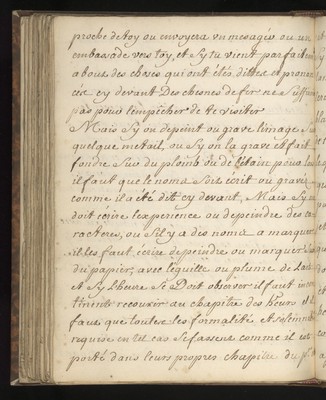 proche de toy ou envoyera un mesagé ou un
embassade vers toy, et sy tu vient parfait
about des choses qui ont étés, dittes et pronon
cée cy devant Des chesnes de fer ne suffir
pas pour l'empecher de te visiter
Mais sy on depeint ou grave limage
quelque metail, ou sy on la grave et fait
fondre sur du plomb ou de létain pour
il faut que le noms soit écrit ou gravé
comme il a été dit cy devant, Mais sy
doit écrire lexperience ou depeindre des ca
racteres, ou s'il y a des noms a marquer
il les faut écrire depeindre ou marquer
du papier, avec leguille ou plume de
et sy lheure se doit observer il faut incon
tinents recourir au chapitre des heurs et il
faut que toutes les formalité et solemn
requise en tel cas se fassent comme il est
porté dans leurs propres chapitre du